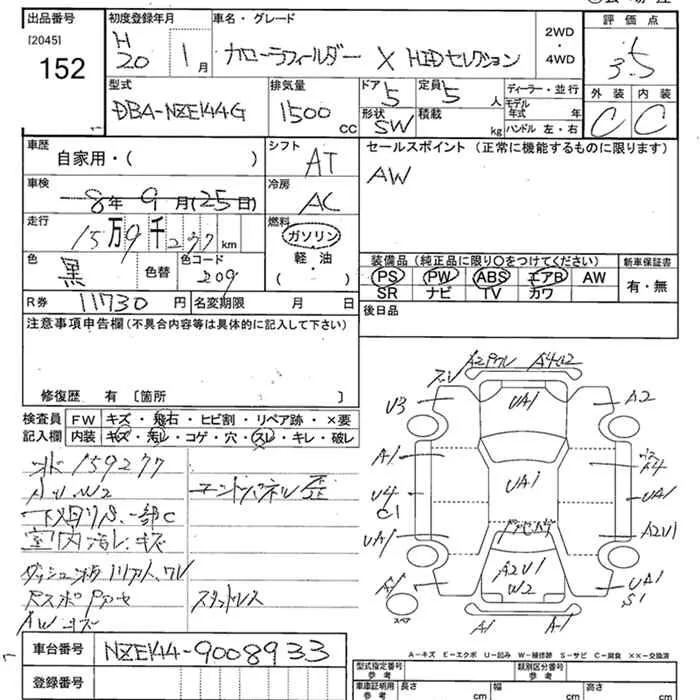 出品番号 初度登録年月 車名・グレード 評価点
[2045] H 20 1月 カローラフィールダー X HIDセレクション 2WD・4WD 3.5
152
型式 排気量 ドア 定員 ディーラー・並行 外装 内装
DBA-NZE144G 1500 CC 5 5 人 モデル年式 年 C C
形状 SW 積載 kg ハンドル 左・右
車歴 シフト セールスポイント (正常に機能するものに限ります)
自家用・( ) AT AW
車検 冷房
8年 9月(25日) AC
走行 燃料
15万9千277km ガソリン
色 色替 色コード 軽・油 装備品(純正品に限り○をつけてください) 新車保証書
黒 209 ( ) PS PW ABS エアB AW 有・無
SR ナビ TV カワ
R券 11730円 名変期限 月 日 後日品
注意事項申告欄(不具合内容等は具体的に記入して下さい)
修復歴 有 [箇所 ]
検査員 FW キズ・飛石・ヒビ割・リペア跡・×要
記入欄 内装 キズ・汚レ・コゲ・穴・スレ・キレ・破レ
159277
W2 コーナーパネル歪
下回りサ、一部C
室内汚レ・キズ
スタッドレス
AWキズ
A4W2
U3 UA1 A2
A1
U4 UA1 UA1
C1
UA1 A2U1
A1 A2U1 UA1
W2 S1
スペア A1 A1
A-キズ E-エクボ U-凹み W-補修跡 S-サビ C-腐食 XX-交換済
車台番号 NZE144-9008933
登録番号
型式指定番号 参考 類別区分番号 参考
車庫証明用 参考 長さ cm 幅 cm 高さ cm